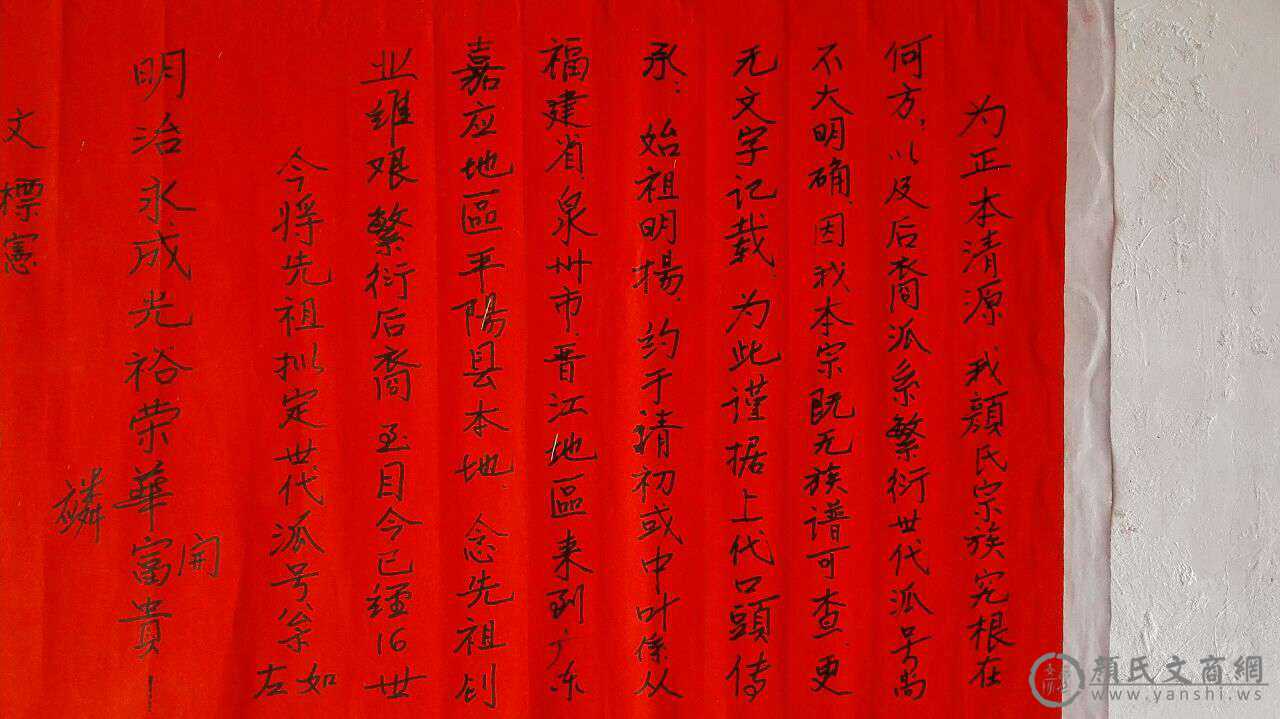 为正本清源我顏氏宗族究根在
何方，以及后裔派系繁衍世代派号尚
不大明确因我本宗既无族谱可查更
无文字记载，为此谨据上代口頭传
承：始祖明揚，约于清初或中叶係从
福建省泉州市，晋江地區来到广东
嘉应地區平陽县本地，念先祖创
业维艰繁衍后裔至目今已經16世
今将先祖拟定世代派号 如
左
明治永成光裕荣華富貴
開
麟
文標憲
顏氏文商網
www.yanshi.ws